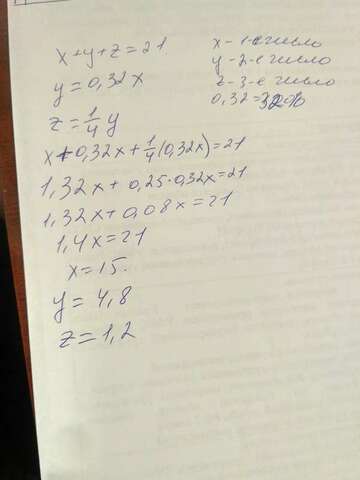 x+y+z=21
y=0,32x
z=1/4 y
x+0,32x+1/4(0,32x)=21
1,32x+0,25·0,32x=21
1,32x+0,08x=21
1,4x=21
x=15.
y=4,8
z=1,2
x-1-е число
y-2-е число
z-3-е число
0,32=32%